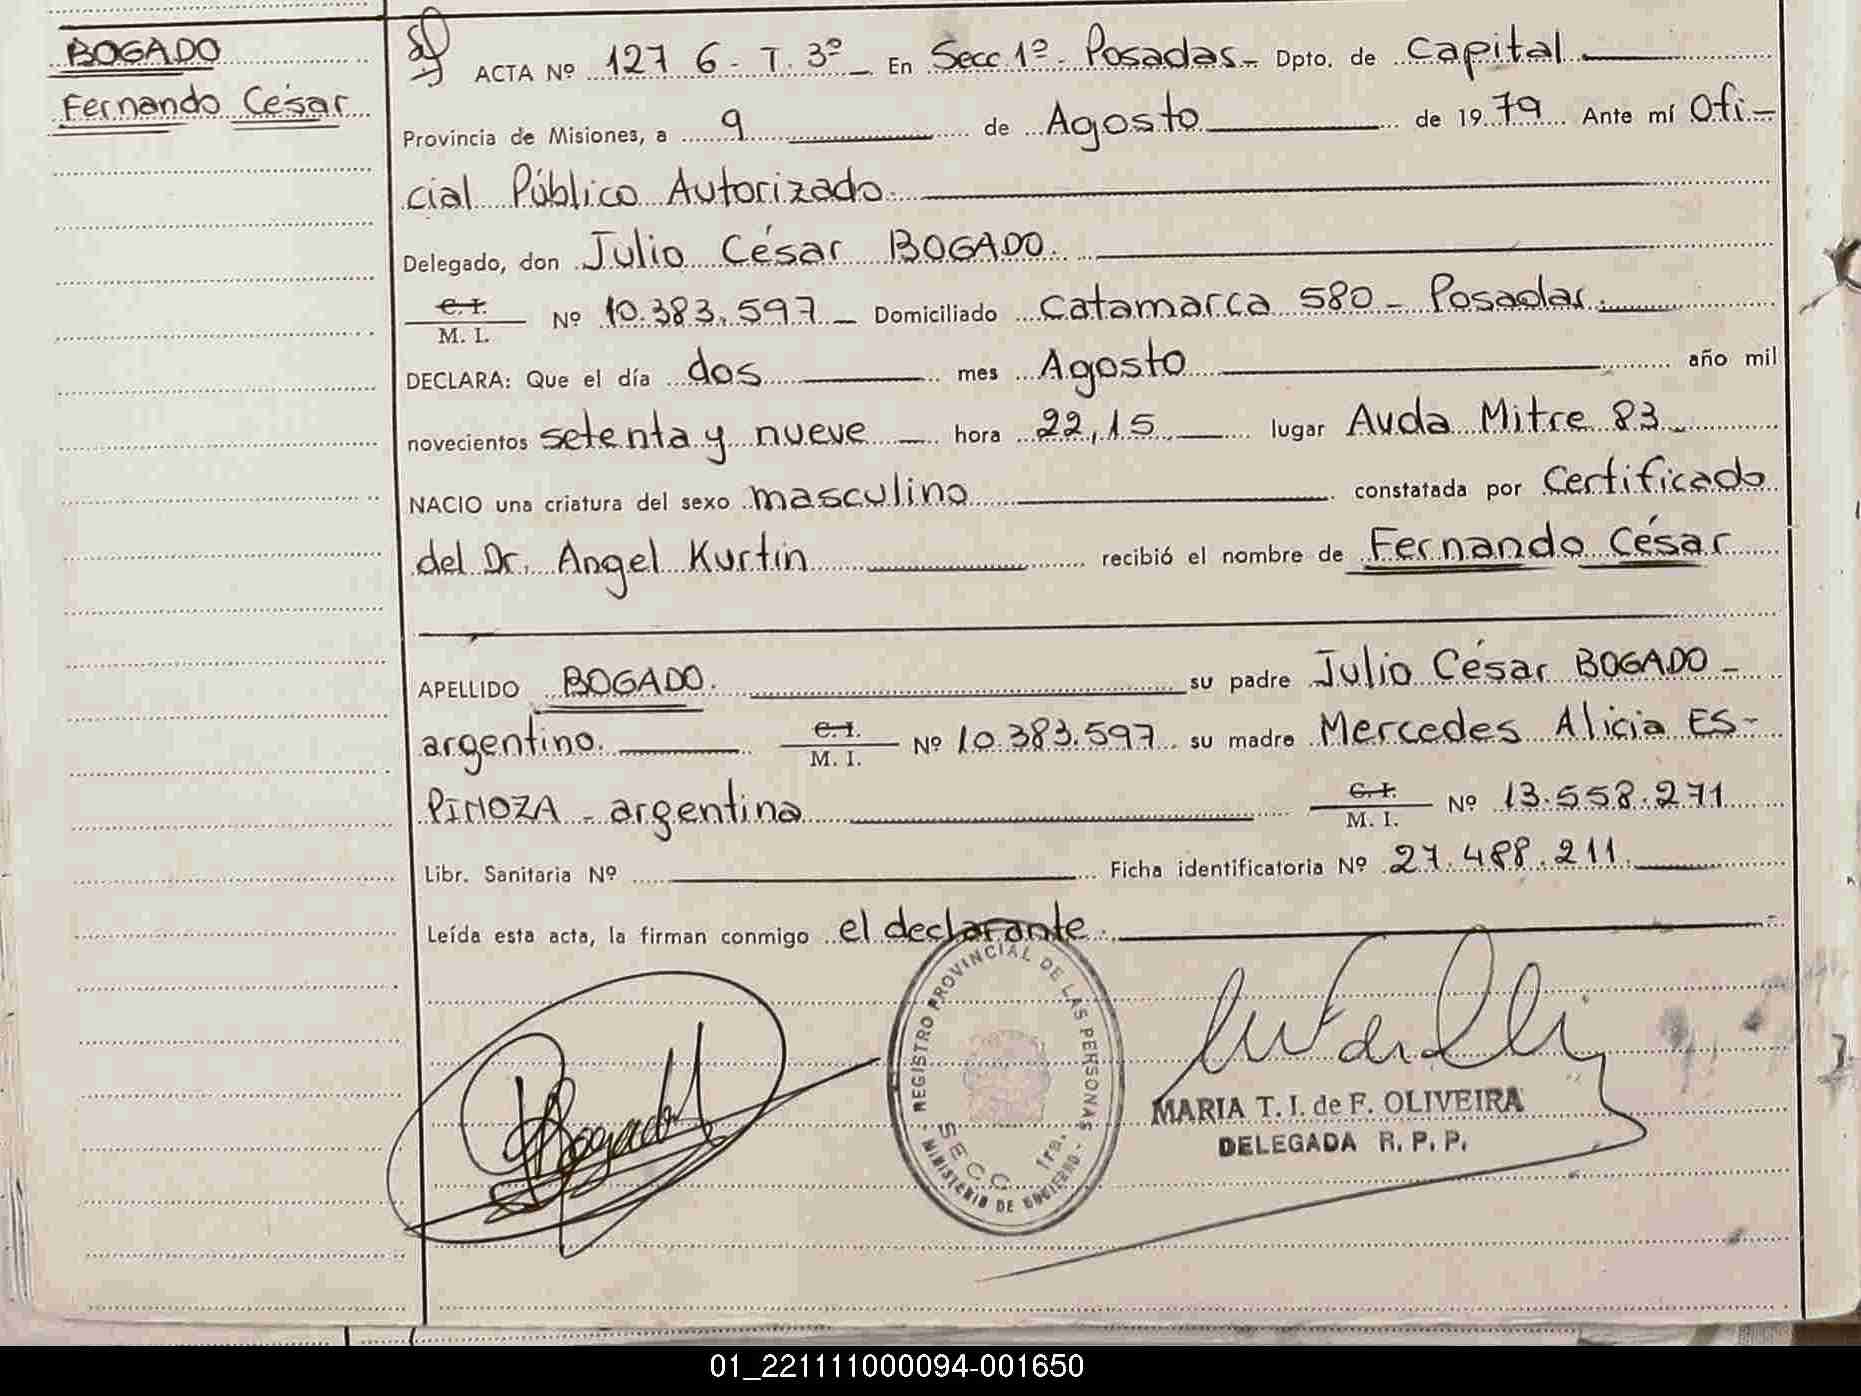 BOGADO
Fernando César
ACTA Nº 127 6 - T. 3º - En Secc 1º - Posadas - Dpto. de Capital
Provincia de Misiones, a 9 de Agosto de 1979 Ante mí Ofi-
cial Público Autorizado.
Delegado, don Julio César BOGADO.
C. I.
M. I. Nº 10.383.597 - Domiciliado Catamarca 580 - Posadas.
DECLARA: Que el día dos mes Agosto año mil
novecientos setenta y nueve - hora 22,15 lugar Avda Mitre 83
NACIO una criatura del sexo masculino constatada por Certificado
del Dr. Angel Kurtin recibió el nombre de Fernando César
APELLIDO BOGADO. su padre Julio César BOGADO -
argentino. C. I. M. I. Nº 10.383.597 su madre Mercedes Alicia ES-
PINOZA - argentina C. I. M. I. Nº 13.558.271
Libr. Sanitaria Nº Ficha identificatoria Nº 27.488.211.
Leída esta acta, la firman conmigo el declarante.
REGISTRO PROVINCIAL DE LAS PERSONAS
SECC. 1ra.
- MINISTERIO DE GOBIERNO -
Bogado
MARIA T. I. de F. OLIVEIRA
DELEGADA R. P. P.
01_221111000094-001650